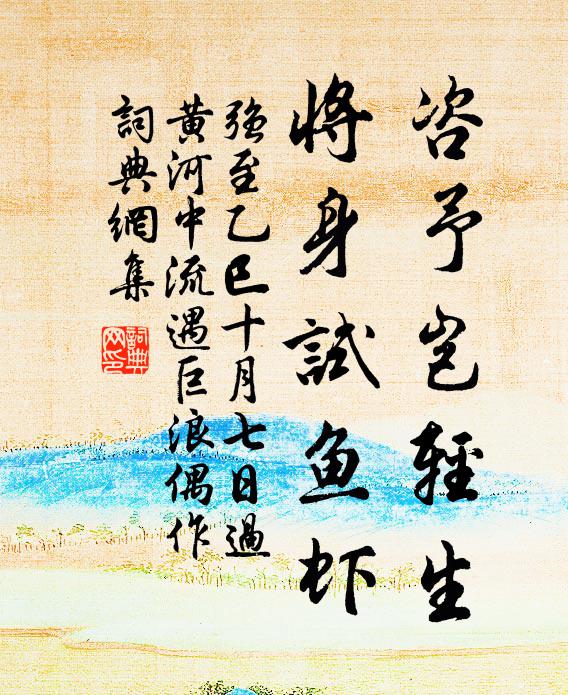 咨予岂轻生
将身試鱼虾
強至乙巳十月七日過
黄河中流遇巨浪偶作
詞典網集
詞典网印